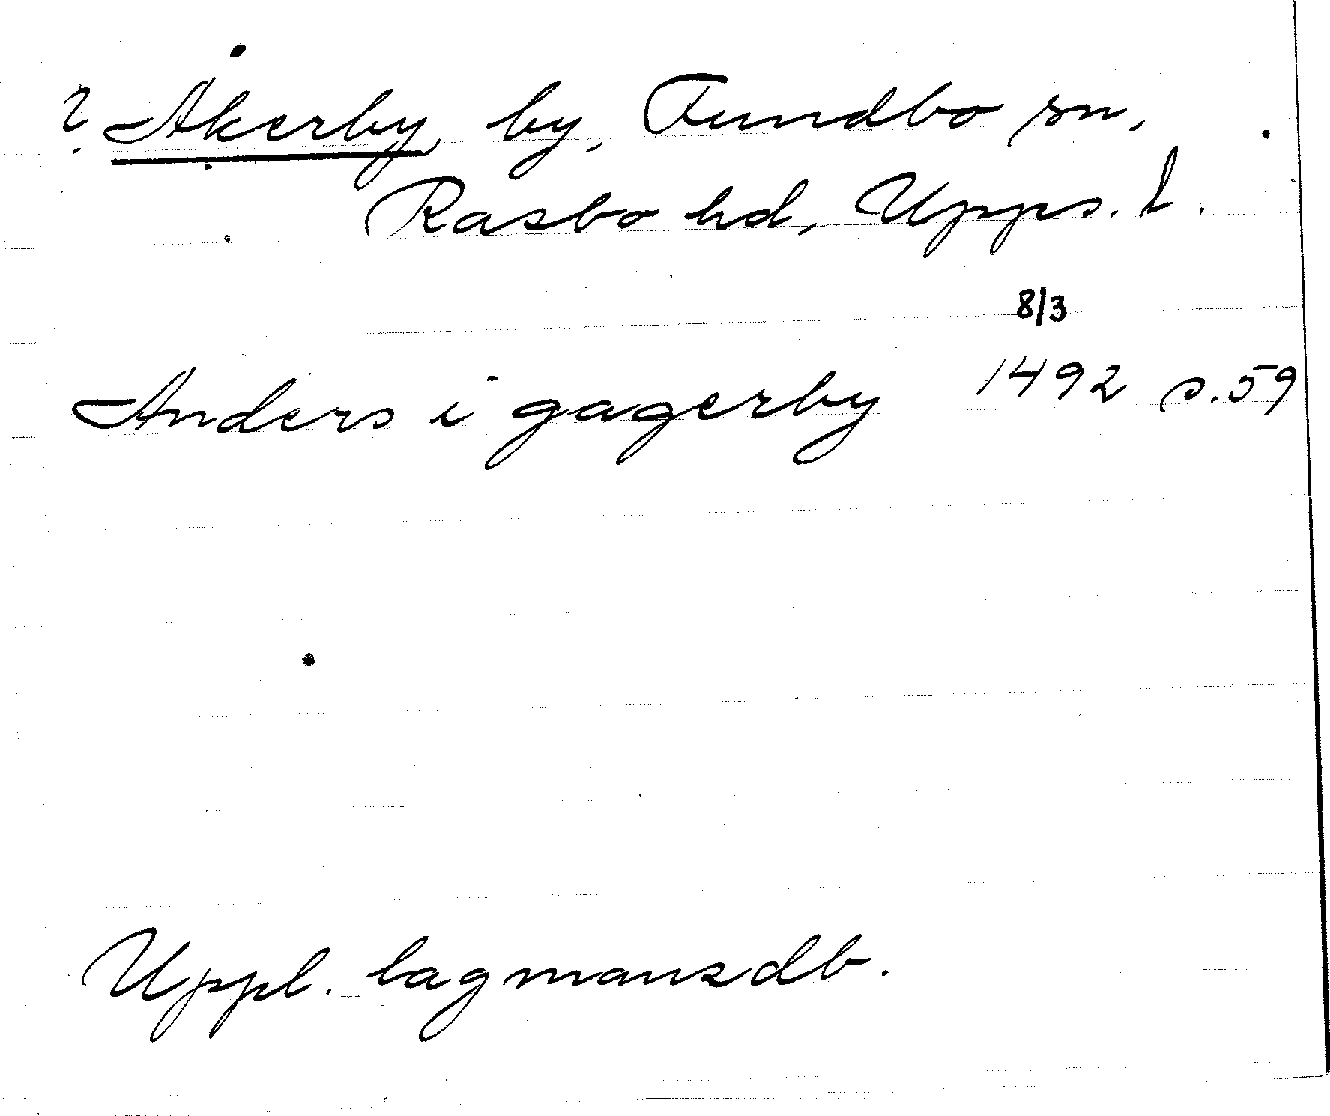 ? Åkerby, by, Funbo sn,
Rasbo hd, Upps. l.
8/3
Anders i gagerby 1492 s. 59
Uppl. lagmansdb.